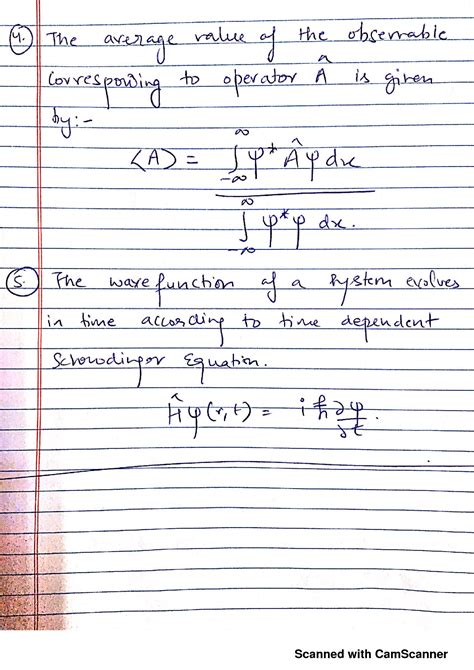 4. The average value of the observable
corresponding to operator Â is given
by:-
⟨A⟩ = ∫_{-∞}^{∞} ψ* Â ψ dx / ∫_{-∞}^{∞} ψ* ψ dx.
5. The wave function of a system evolves
in time according to time dependent
Schrowdinger Equation.
Ĥψ(r,t) = iħ ∂ψ/∂t.
Scanned with CamScanner